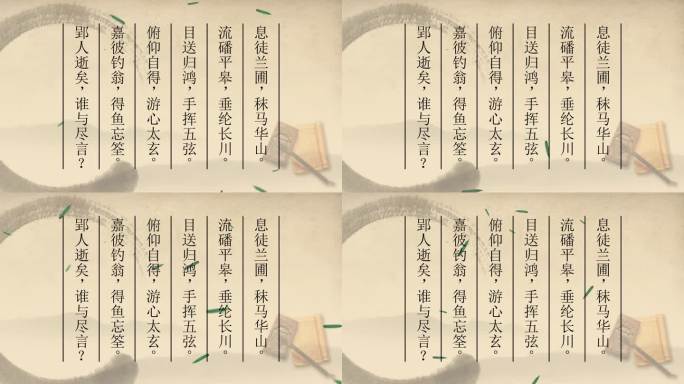 息徒兰圃，秣马华山。
流磻平皋，垂纶长川。
目送归鸿，手挥五弦。
俯仰自得，游心太玄。
嘉彼钓翁，得鱼忘筌。
郢人逝矣，谁与尽言？
息徒兰圃，秣马华山。
流磻平皋，垂纶长川。
目送归鸿，手挥五弦。
俯仰自得，游心太玄。
嘉彼钓翁，得鱼忘筌。
郢人逝矣，谁与尽言？
息徒兰圃，秣马华山。
流磻平皋，垂纶长川。
目送归鸿，手挥五弦。
俯仰自得，游心太玄。
嘉彼钓翁，得鱼忘筌。
郢人逝矣，谁与尽言？
息徒兰圃，秣马华山。
流磻平皋，垂纶长川。
目送归鸿，手挥五弦。
俯仰自得，游心太玄。
嘉彼钓翁，得鱼忘筌。
郢人逝矣，谁与尽言？